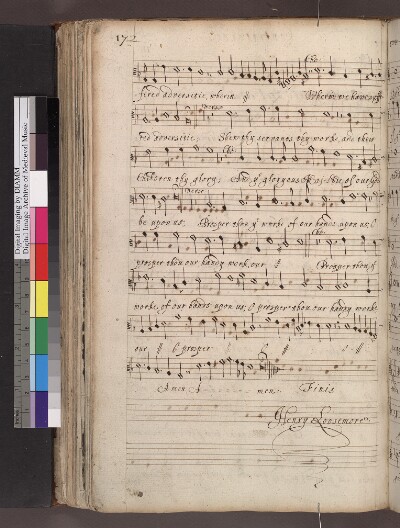 172
fered adversitie, wherin Wherin we have suff
red adversitie: Shew thy servants thy worke, and their
Children thy glory: glorious of our god
be upon us: Prosper thou ye worke of our hands upon us; O
prosper thou our handy work, our Prosper thou ye
worke of our hands upon us; O prosper thou our handy worke
our O prosper
Amen A men: Finis
Henry Loosemore
Digital Imaging by DIAMM
Digital Image Archive of Medieval Music